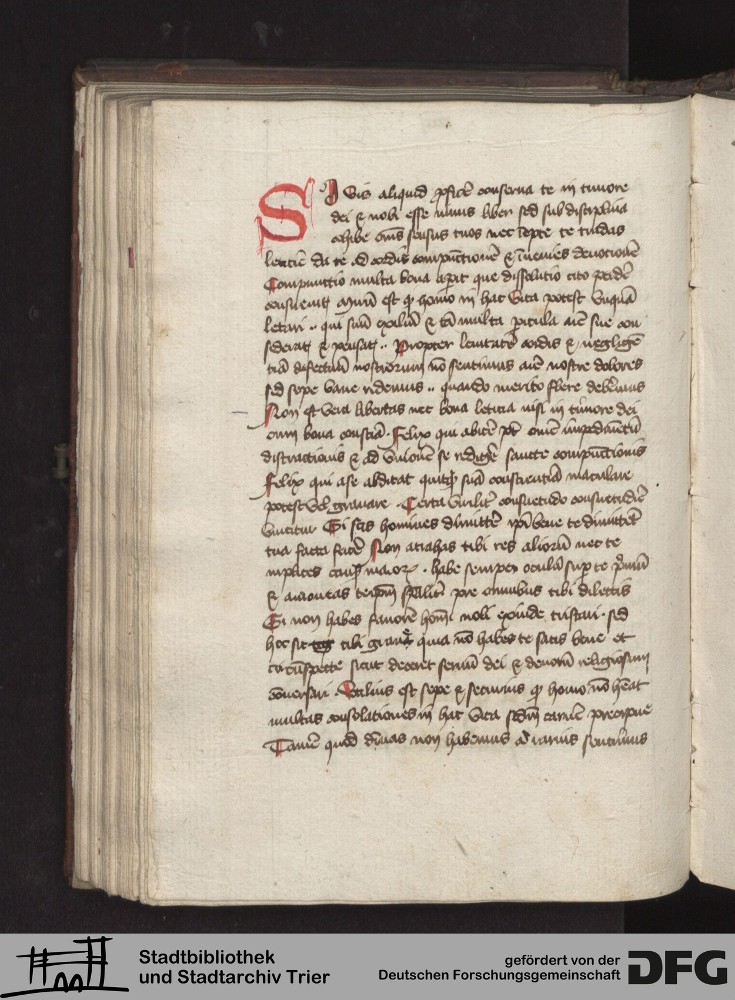 SI vis aliquid proficere conserva te in timore
dei et noli esse nimis liber sed sub disciplina
cohibe omnes sensus tuos nec inepte te tradas
leticie da te ad cordis compunctionem et invenies devocionem
Compunctio multa bona aperit que dissolutio cito perdere
consuevit Mirum est quod homo in hac vita potest unquam
letari qui suum exilium et tam multa pericula anime sue con
siderat et pensat Propter levitatem cordis et negligen
tiam defectuum nostrorum non sentimus anime nostre dolores
sed sepe vane ridemus quando merito flere deberemus
Non est vera libertas nec bona leticia nisi in timore dei
cum bona conscientia Felix qui abicere potest omne impedimentum
distractionis et ad unionem se redigere sancte compunctionis
Felix qui a se abdicat quitquid suam conscientiam maculare
potest vel gravare Certa viriliter consuetudo consuetudine
vincitur Si scis homines dimittere ipsi bene te dimittent
tua facta facere Non atrahas tibi res aliorum nec te
inplices causis maiorum habe semper oculum super te primum
et amoneas teipsum specialiter pre omnibus tibi dilectis
Si non habes favorem hominum noli exinde tristari sed
hoc sit tibi grave quia non habes te satis bene et
circumspecte sicut deceret servum dei et devotum religiosum
conversari Utilius est sepe et securius quod homo non habeat
multas consolationes in hac vita secundum carnem precipue
Tamen quod divinas non habemus aut rarius sentimus
Stadtbibliothek
und Stadtarchiv Trier
gefördert von der
Deutschen Forschungsgemeinschaft
DFG